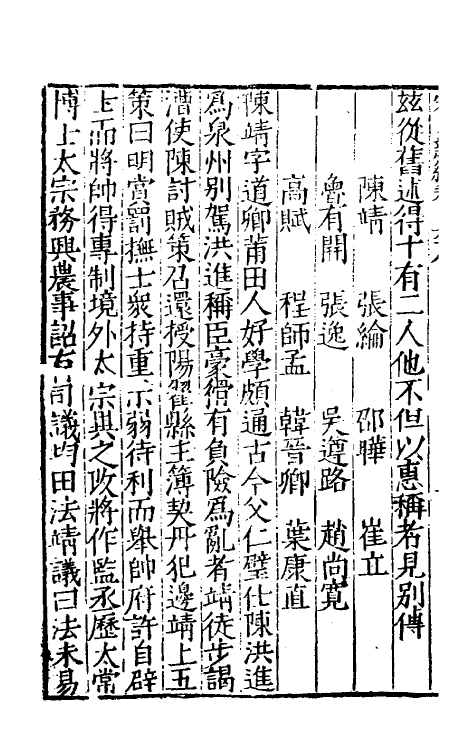 茲從舊述得十有二人他不但以惠稱者見別傳
陳靖　張綸　邵曄　崔立
魯有開　張逸　吳遵路　趙尚寬
高賦　程師孟　韓晉卿　葉康直
陳靖字道卿莆田人好學頗通古今父仁璧仕陳洪進
為泉州別駕洪進稱臣豪猾有負險為亂者靖徒步謁
漕使陳討賊策召還授陽翟縣主簿契丹犯邊靖上五
策曰明賞罰撫士衆持重示弱待利而舉帥府許自辟
士而將帥得專制境外太宗異之改將作監丞歷太常
博士太宗務興農事詔有司議均田法靖議曰法未易